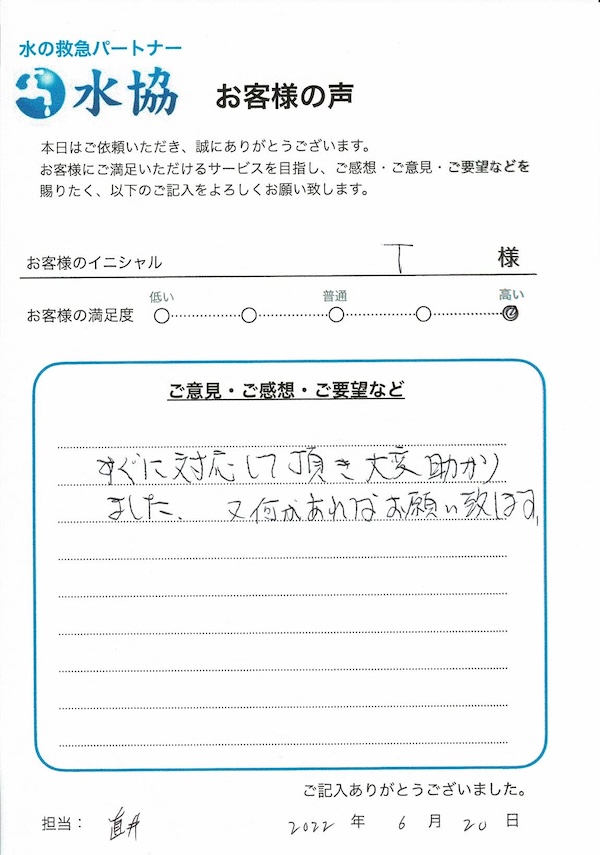 水の救急パートナー
水協
お客様の声
本日はご依頼いただき、誠にありがとうございます。
お客様にご満足いただけるサービスを目指し、ご感想・ご意見・ご要望などを
賜りたく、以下のご記入をよろしくお願い致します。
お客様のイニシャル T 様
低い 普通 高い
お客様の満足度
ご意見・ご感想・ご要望など
すぐに対応して頂き大変助かり
ました、又何かあればお願い致します、
ご記入ありがとうございました。
担当： 直井 2022 年 6 月 20 日